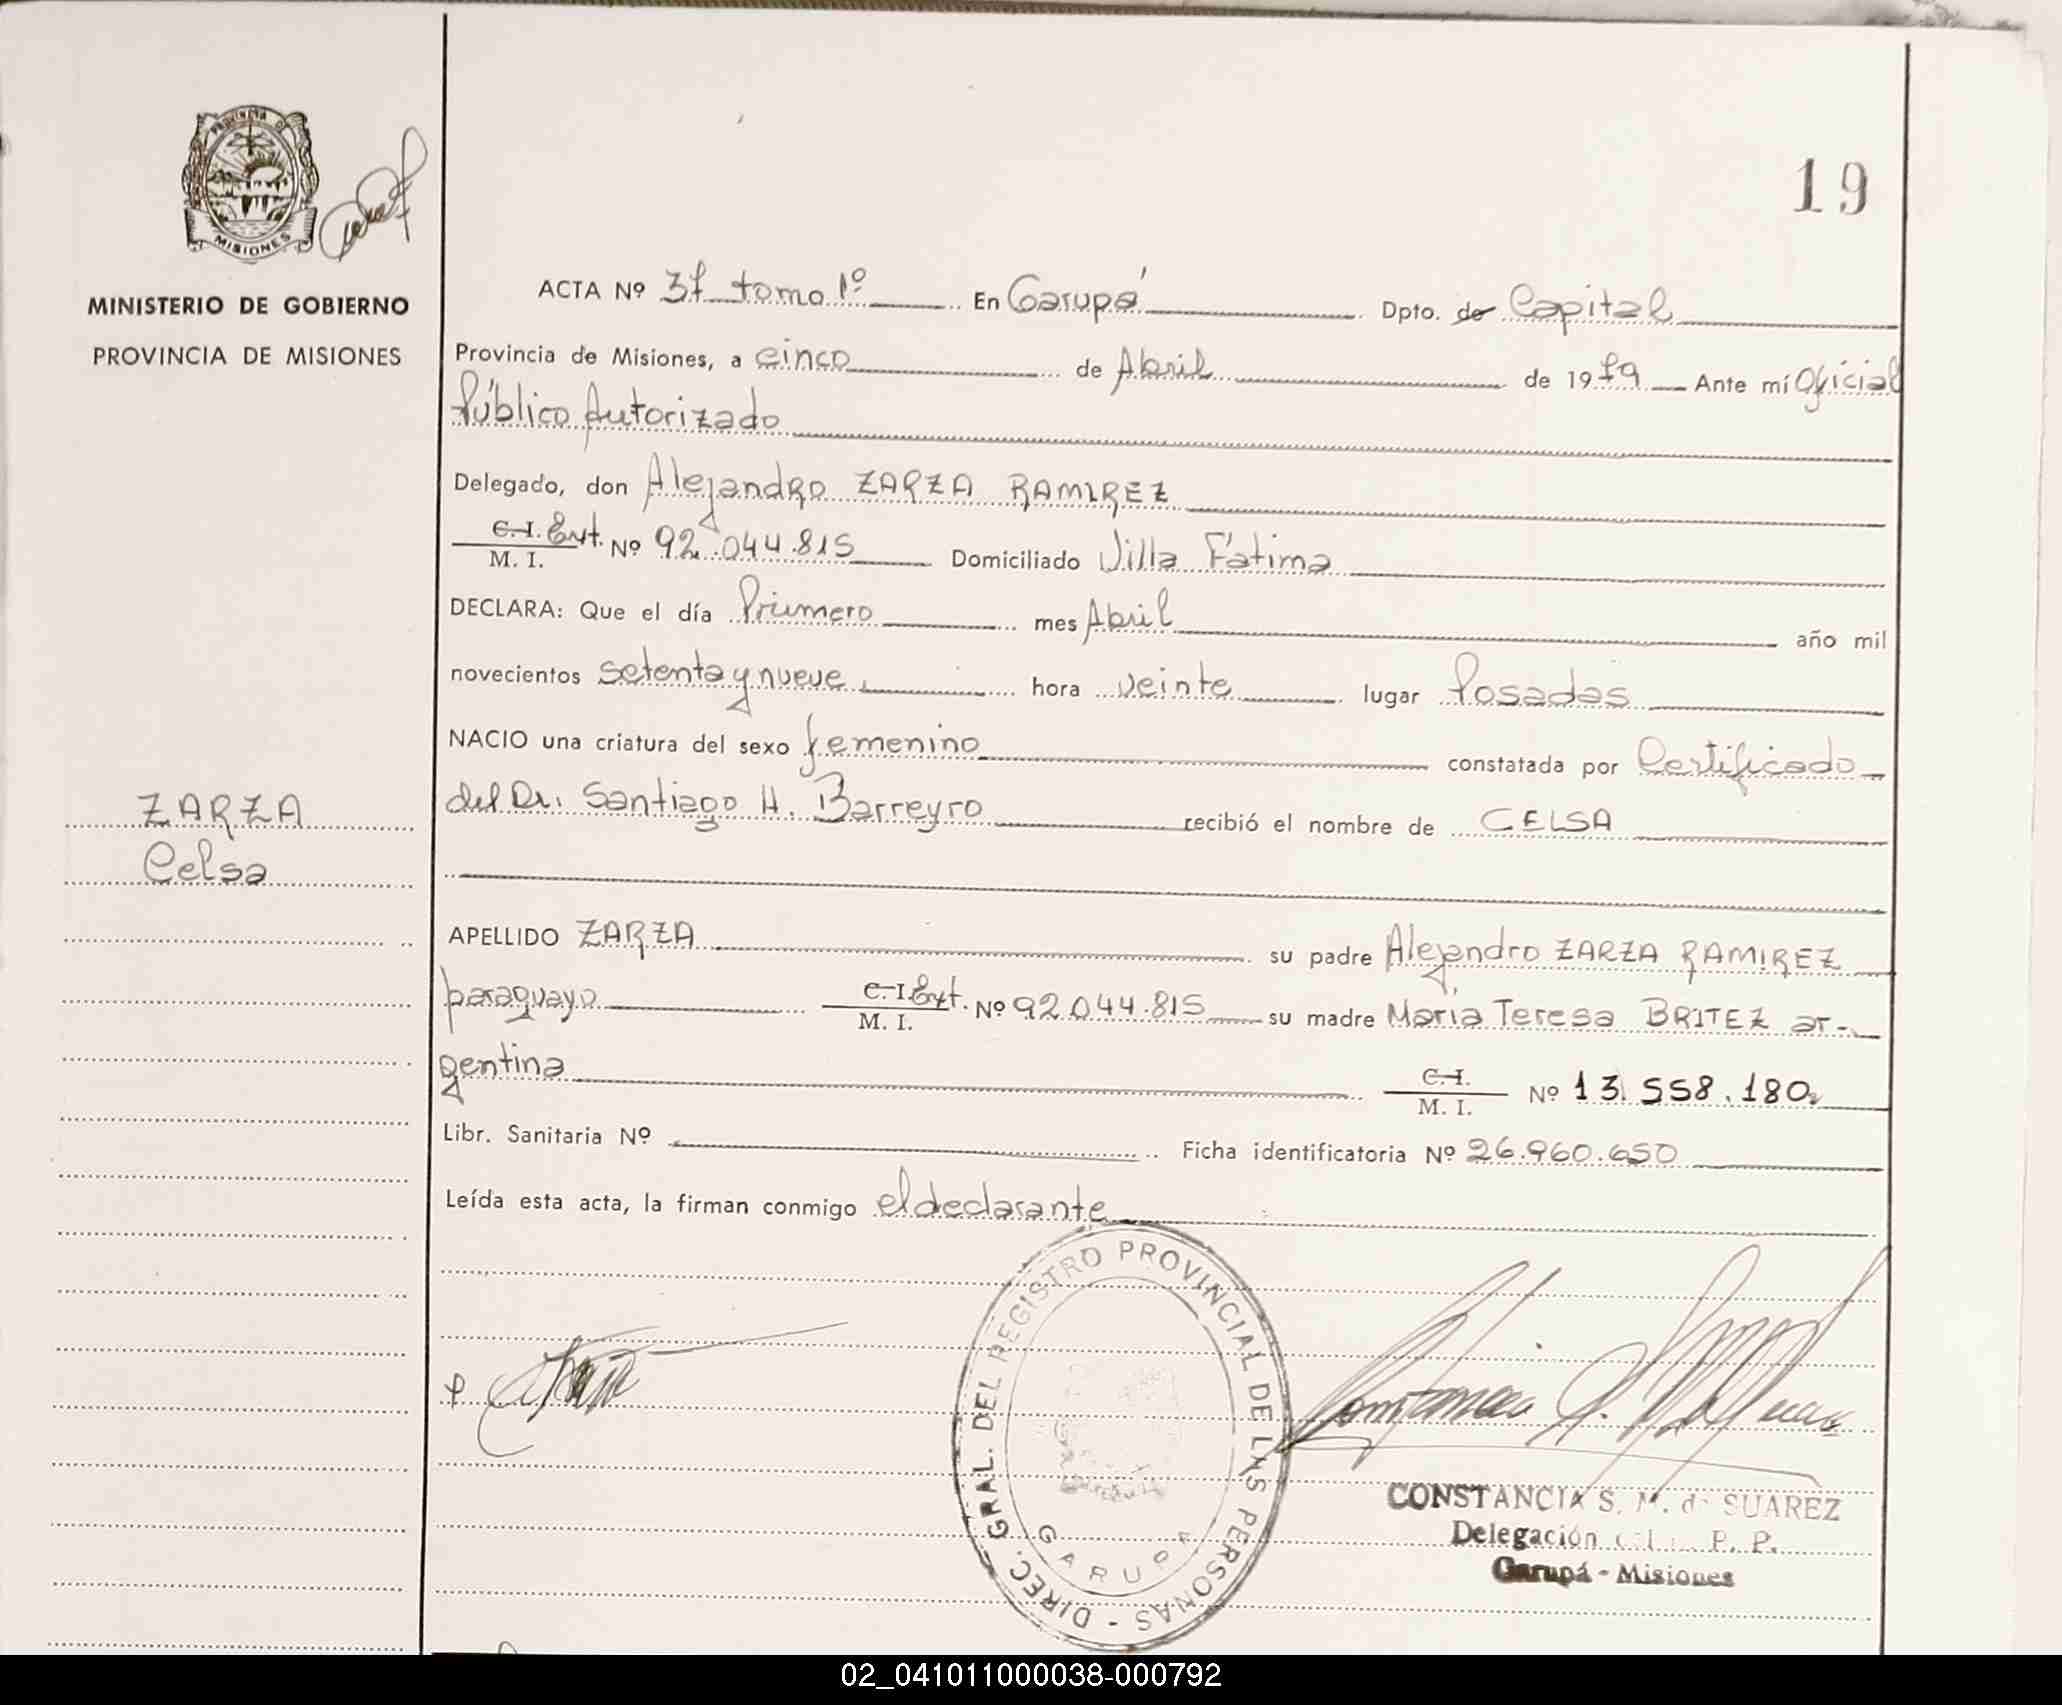 PROVINCIA DE
MISIONES
MINISTERIO DE GOBIERNO
PROVINCIA DE MISIONES
19
ACTA Nº 37 tomo 1º En Garupá Dpto. de Capital
Provincia de Misiones, a cinco de Abril de 1979 Ante mí Oficial
Público Autorizado
Delegado, don Alejandro ZARZA RAMIREZ
C.I. Ext. Nº 92.044.815 Domiciliado Villa Fátima
M. I.
DECLARA: Que el día Primero mes Abril año mil
novecientos setenta y nueve hora veinte lugar Posadas
NACIO una criatura del sexo femenino constatada por Certificado
del Dr. Santiago H. Barreyro recibió el nombre de CELSA
ZARZA
Celsa
APELLIDO ZARZA su padre Alejandro ZARZA RAMIREZ
paraguayo C.I. Ext. Nº 92.044.815 su madre María Teresa BRITEZ ar-
M. I.
gentina C.I. Nº 13.558.180
M. I.
Libr. Sanitaria Nº Ficha identificatoria Nº 26.960.650
Leída esta acta, la firman conmigo el declarante
DIREC. GRAL. DEL REGISTRO PROVINCIAL DE LAS PERSONAS -
GARUPA
CONSTANCIA S. M. de SUAREZ
Delegación P. P.
Garupá - Misiones
02_041011000038-000792